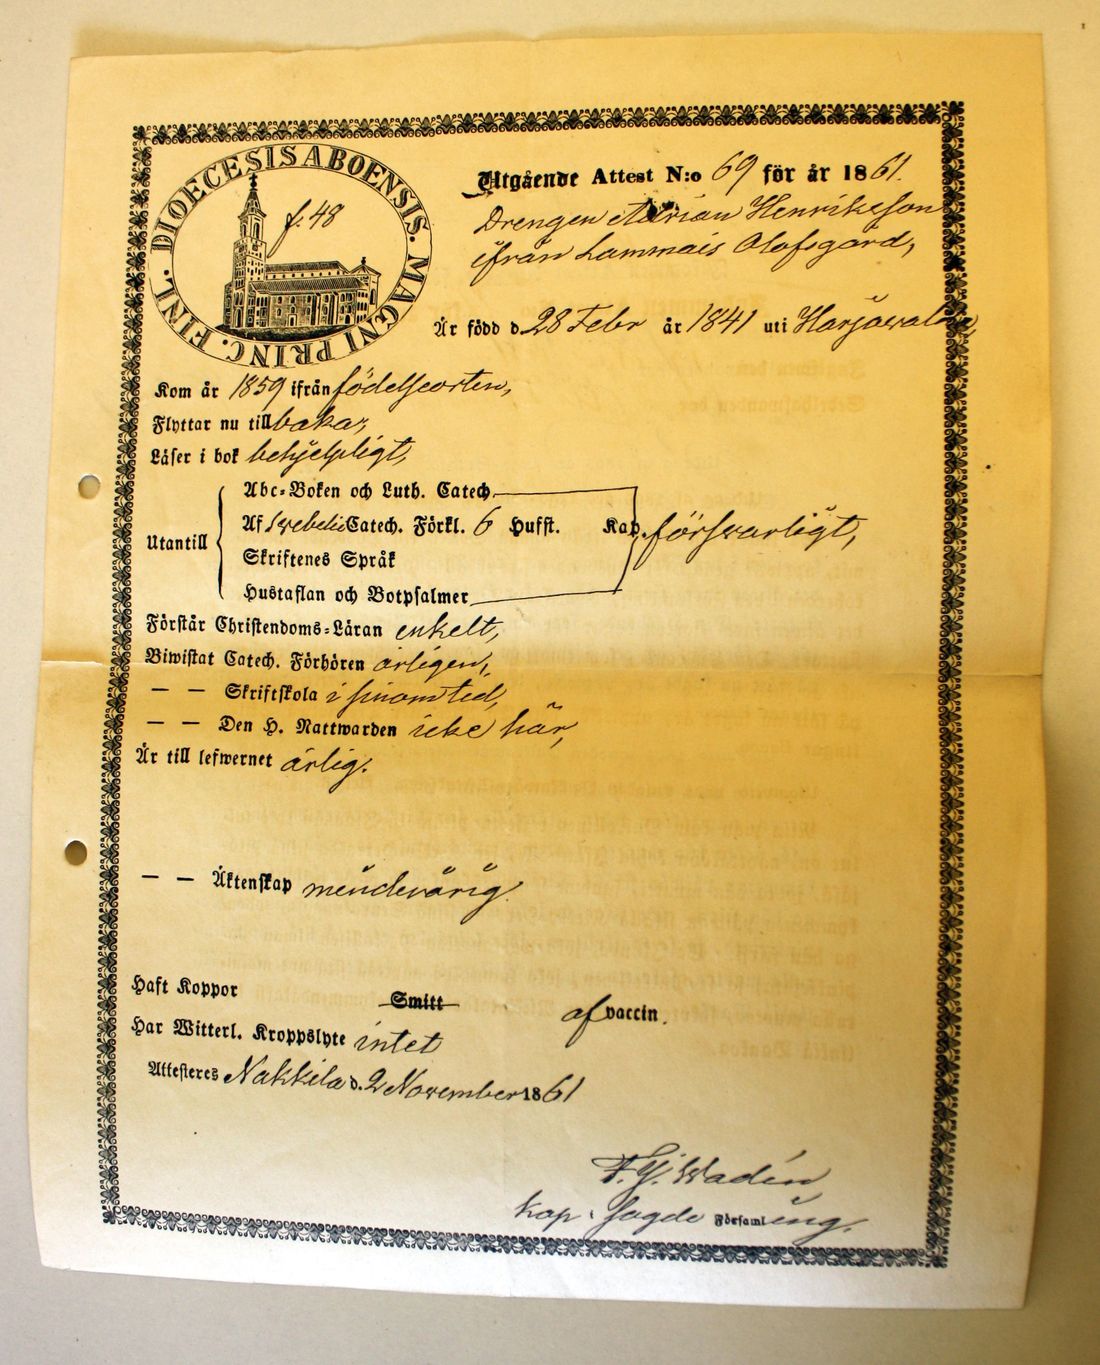 DIOECESIS ABOENSIS. MAGNI PRINC. FINL.
f. 48
Utgående Attest N:o 69 för år 1861.
Drengen Adrian Henriksson
ifrån Lammais Olofsgård,
Är född d. 28 Febr år 1841 uti Harjawalta,
Kom år 1859 ifrån födelseorten,
Flyttar nu till baka,
Läser i bok behjelpligt,
Utantill
Abc-Boken och Luth. Catech.
Af Swebelii Catech. Förkl. 6 Hufst. Kap. försvarligt,
Skriftenes Språk
Hustaflan och Botpsalmer
Förstår Christendoms-Läran enkelt,
Biwistat Catech. Förhören årligen,
— — Skriftskola i sinom tid,
— — Den H. Nattwarden icke här,
Är till lefwernet ärlig.
— — Äktenskap
Haft Koppor Smitt af vaccin.
Har Witterl. Kroppslyte intet
Attesteres Nakkila d. 2 November 1861
F. G. Wadén
Kap. i sagde Församling.